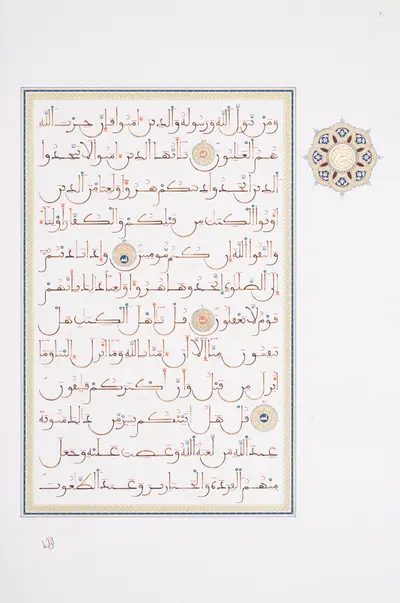 ومن يتول الله ورسوله والذين ءامنوا فإن حزب الله
هم الغلبون يأيها الذين ءامنوا لا تتخذوا
الذين اتخذوا دينكم هزوا ولعبا من الذين
أوتوا الكتب من قبلكم والكفار أولياء
واتقوا الله إن كنتم مومنين وإذا ناديتم
إلى الصلوة اتخذوها هزوا ولعبا ذلك بأنهم
قوم لا يعقلون قل يأهل الكتب هل
تنقمون منا إلا أن ءامنا بالله وما أنزل إلينا وما
أنزل من قبل وأن أكثركم فسقون
قل هل أنبئكم بشر من ذلك مثوبة
عند الله من لعنه الله وغضب عليه وجعل
منهم القردة والخنازير وعبد الطغوت